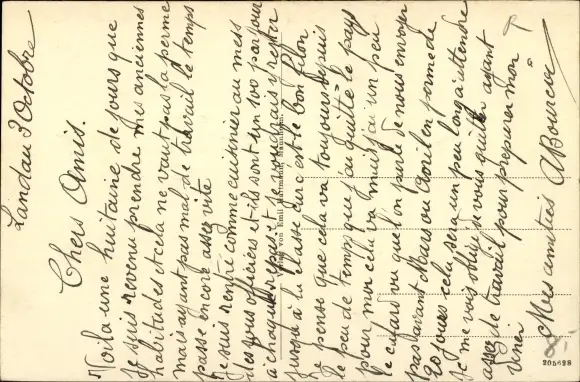 Landau 3 Octobre
Chers Amis.
Voila une huitaine de jours que
je suis revenu prendre mes anciennes
habitudes et cela ne vaut pas la perme
mais ayant pas mal de travail le temps
passe encore assez vite
Je suis rentré comme cuisinier au mess
des sous officiers et ils sont un 100 par jour
à chaque repas, et je voudrais y rester
jusqu'à la classe car c'est le bon filon
Je pense que cela va toujours depuis
le peu de temps que j'ai quitté le pays
pour moi cela va mais j'ai un peu
le cafard vu que l'on parle de nous envoyer
pas avant Mars ou Avril en perme de
20 jours cela sera un peu long à attendre
Je me vois obligé de vous quitter ayant
assez de travail pour preparer mon
diner
Mes amitiés ABourcier
Verlag von Emil Hartmann, Mannheim.
205628